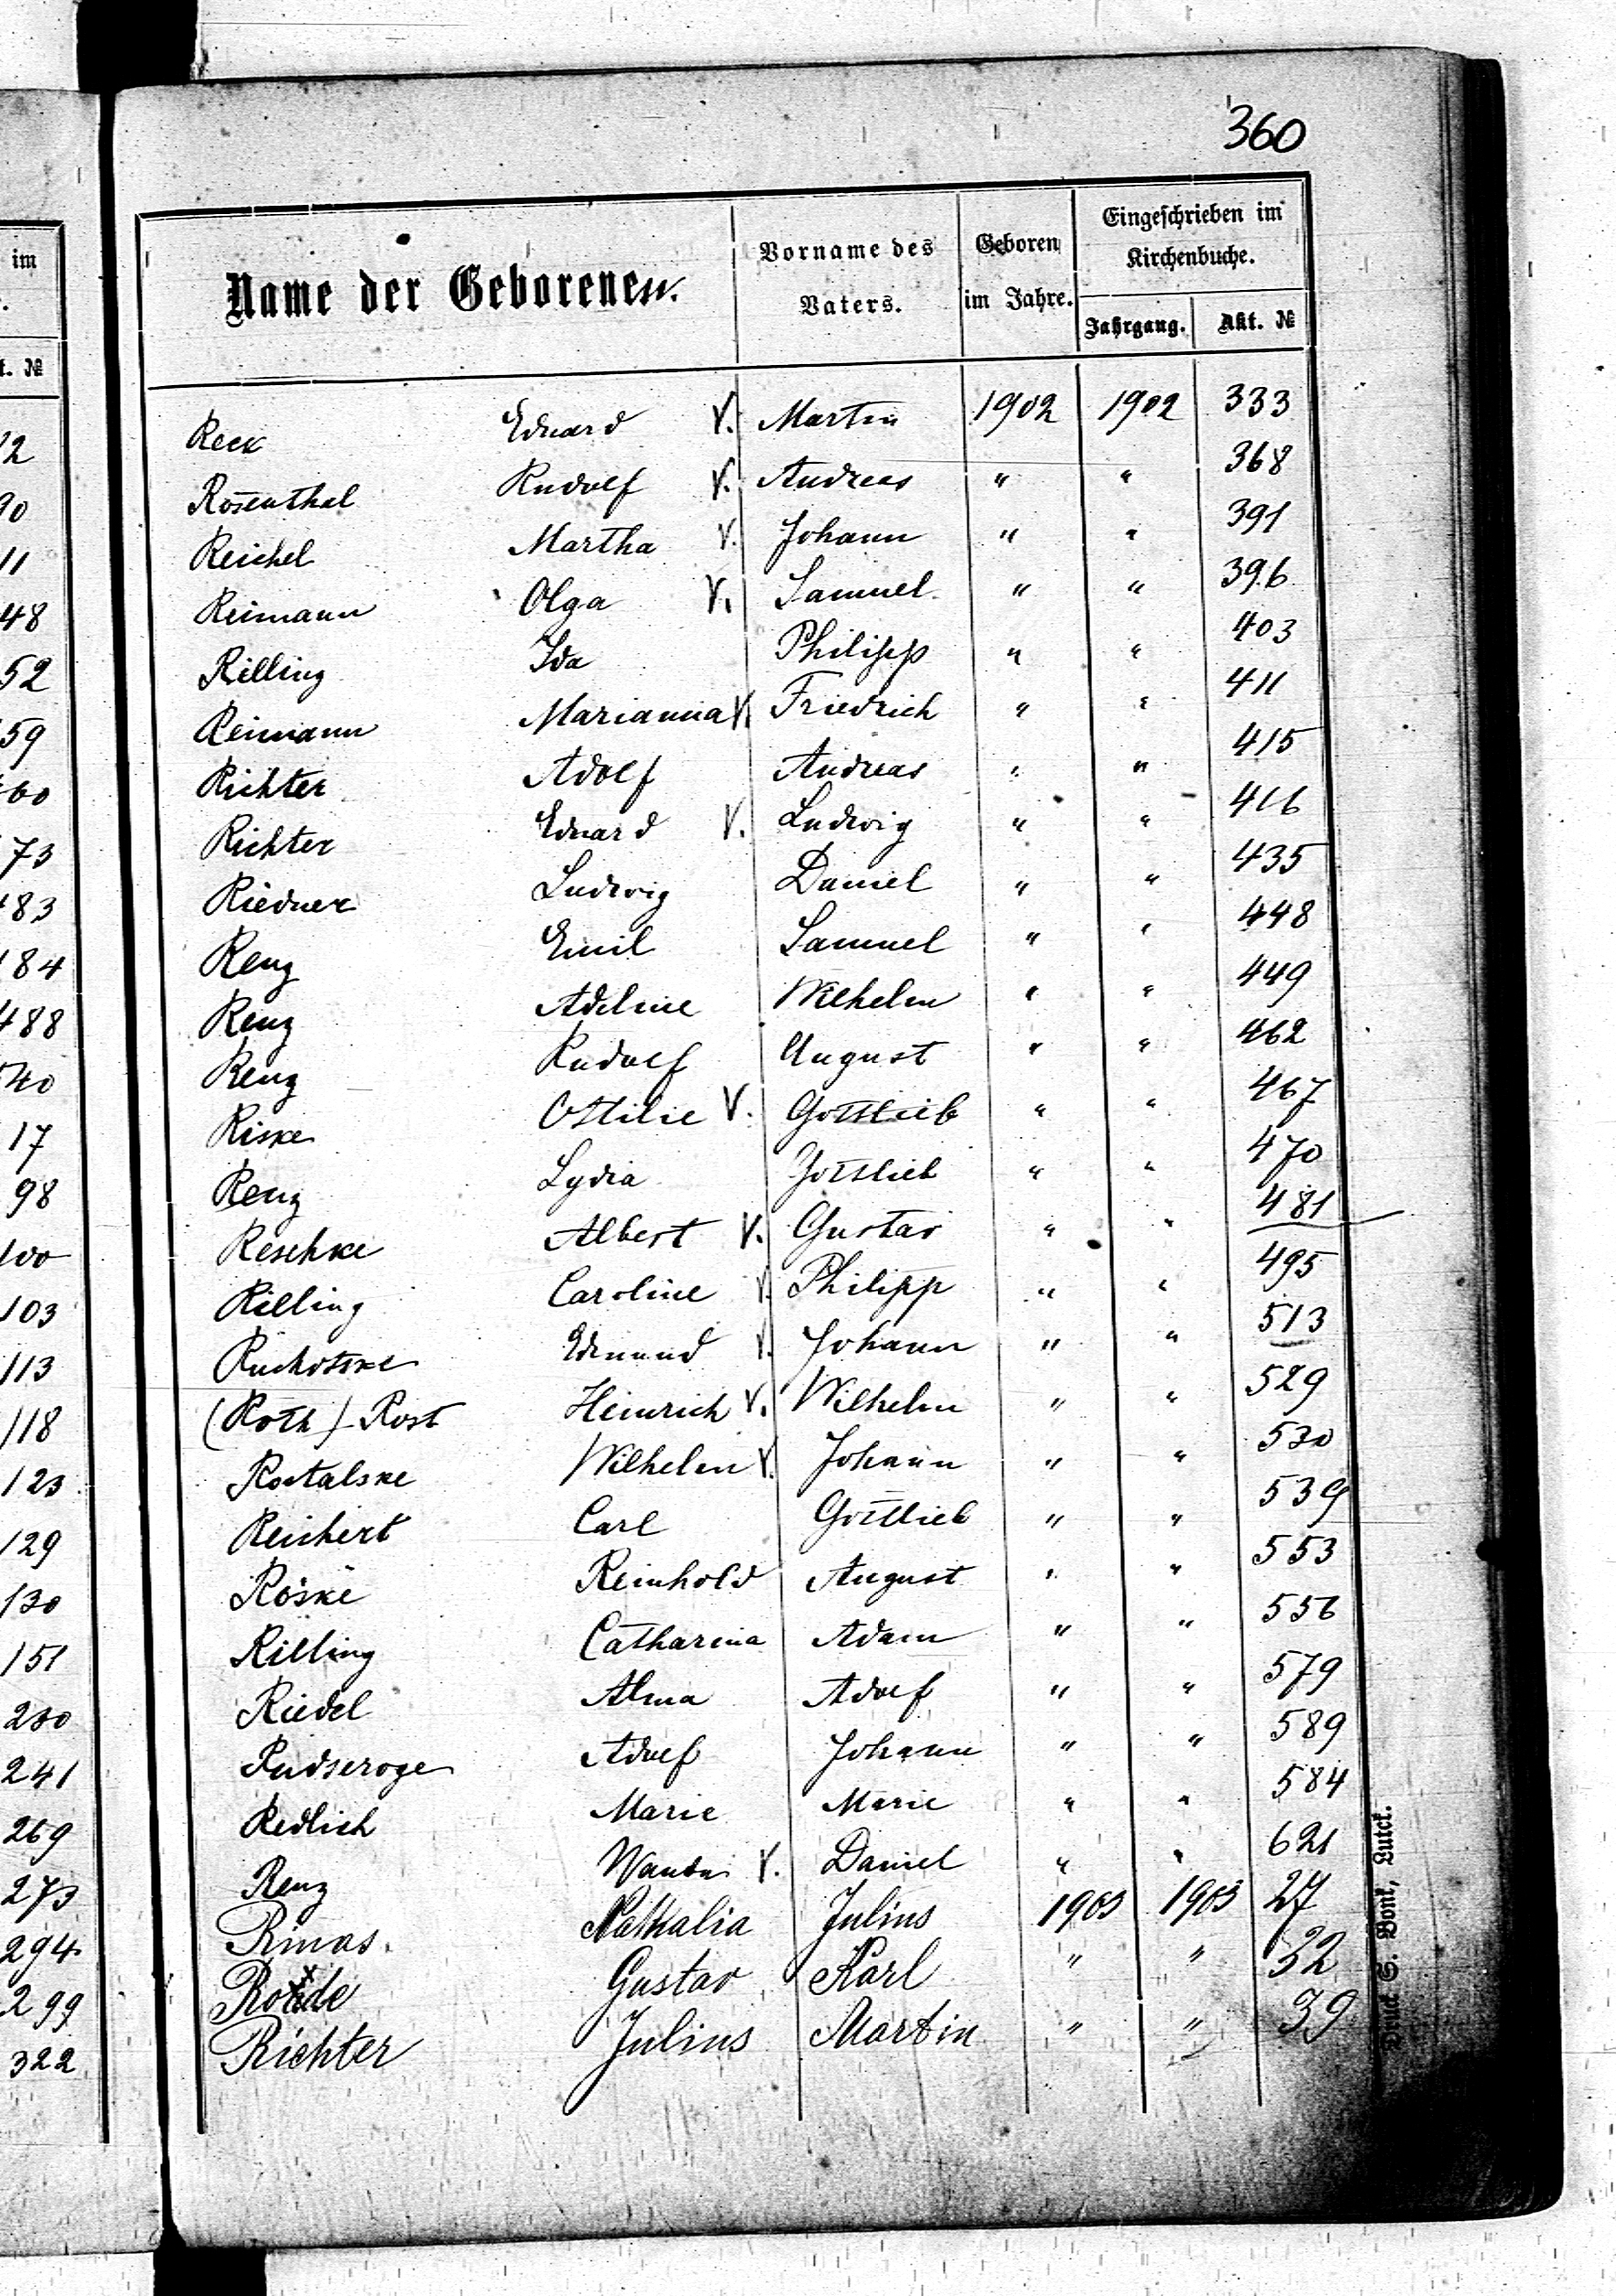 im
.
t. №
12
90
11
48
52
59
460
473
483
484
488
540
17
98
100
103
113
118
123
129
130
151
230
241
269
273
294
299
322
360
Name der Geborenen.
Vorname des Vaters.
Geboren im Jahre.
Eingeschrieben im Kirchenbuche.
Jahrgang. Akt. №
Reck Eduard V. Martin 1902 1902 333
Rosenthal Rudolf V. Andreas " " 368
Reichel Martha V. Johann " " 391
Reimann Olga V. Samuel " " 396
Rilling Ida Philipp " " 403
Reimann Marianna V. Friedrich " " 411
Richter Adolf Andreas " " 415
Richter Eduard V. Ludwig " " 416
Riedner Ludwig Daniel " " 435
Renz Emil Samuel " " 448
Renz Adeline Wilhelm " " 449
Renz Rudolf August " " 462
Riske Ottilie V. Gottlieb " " 467
Renz Lydia Gottlieb " " 470
Reschke Albert V. Gustav " " 481
Rilling Caroline V. Philipp " " 495
Edmund V. Johann " " 513
(Roth) Rost Heinrich V. Wilhelm " " 529
Rostalske Wilhelm V. Johann " " 530
Reichert Carl Gottlieb " " 539
Röske Reinhold August " " 553
Rilling Catharina Adam " " 556
Riedel Alma Adolf " " 579
Rudseroge Adolf Johann " " 589
Redlich Marie Marie " " 584
Renz Wanda V. Daniel " " 621
Rinas. Nathalia Julius 1903 1903 27
Rohde Gustav Karl " " 32
Richter Julius Martin " " 39
Druck S. Bonk, Lutck.